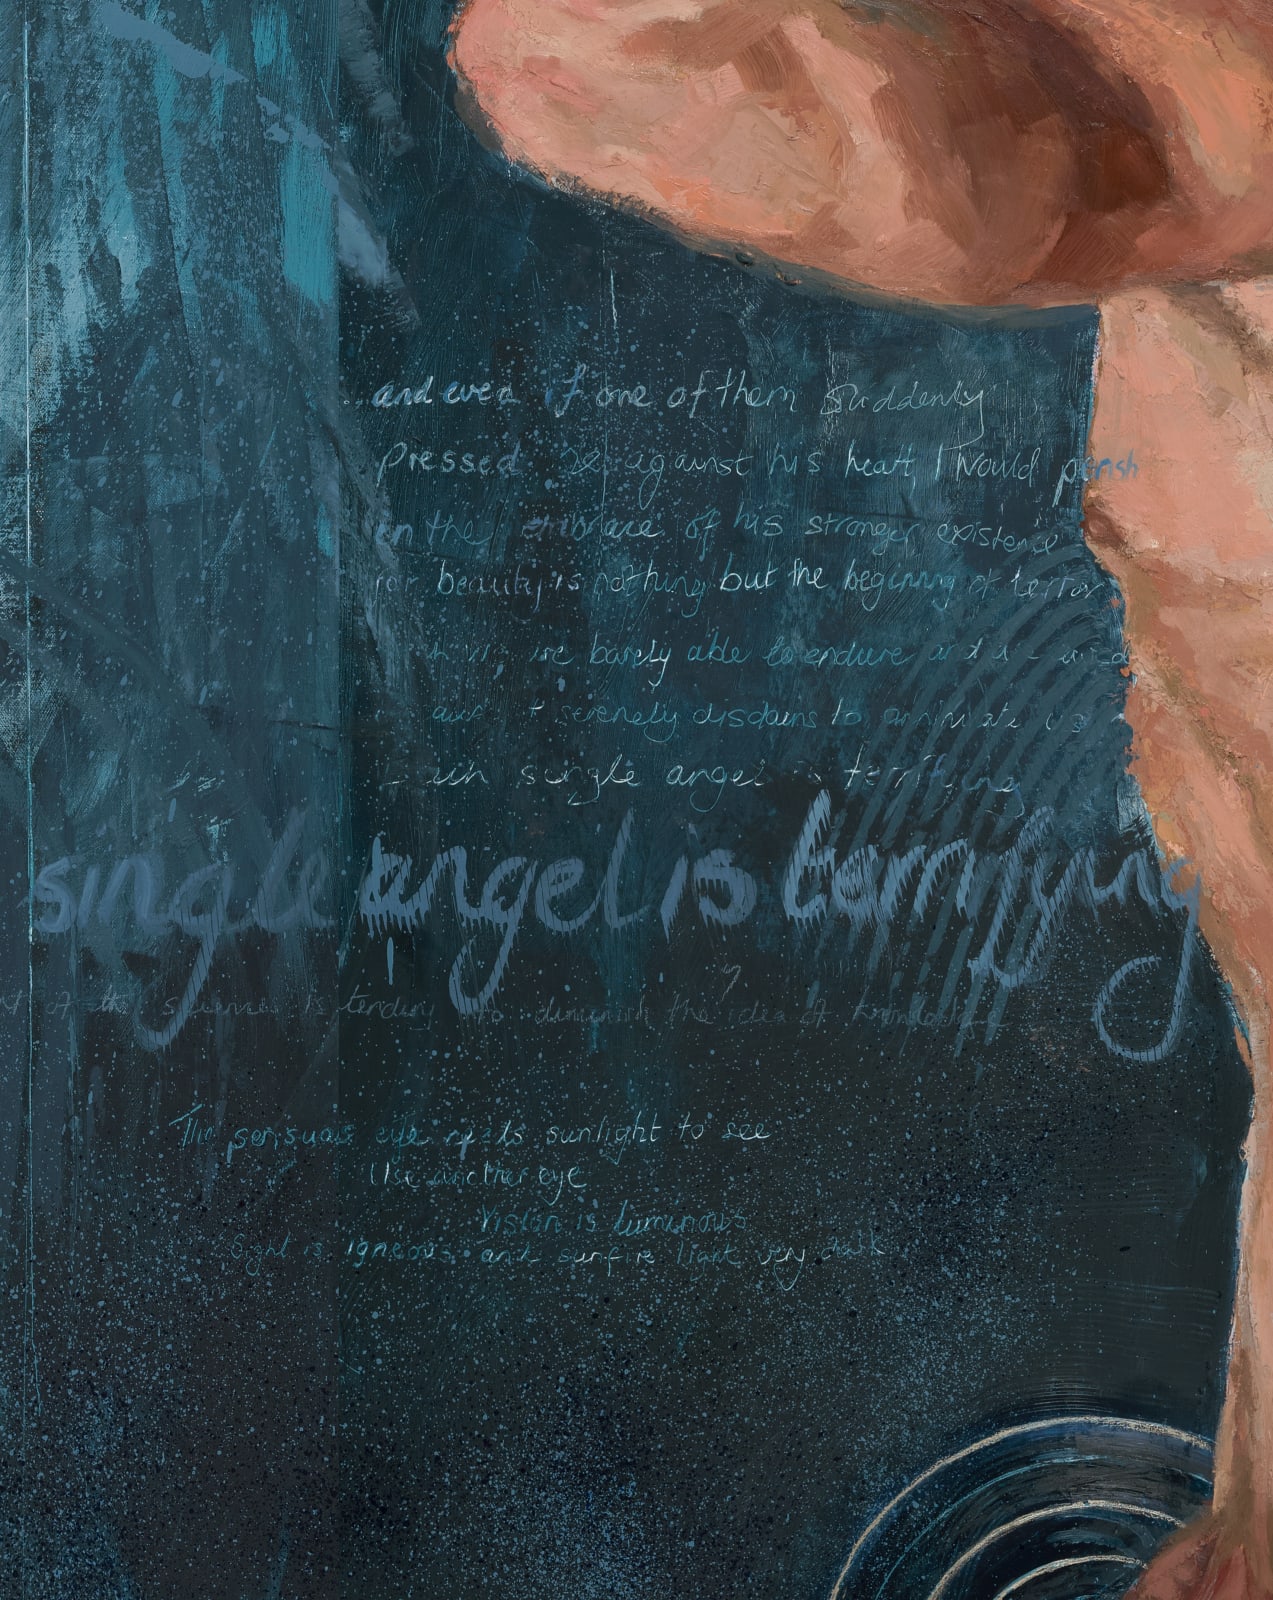 and even if one of them suddenly
pressed me against his heart, I would perish
in the embrace of his stronger existence
for beauty is nothing but the beginning of terror
we barely able to endure and
it serenely disdains to annihilate us
Each single angel is terrifying
single angel is terrifying
of the sciences is tending to diminish the idea of knowledge
The sensuous eye needs sunlight to see
Use another eye
Vision is luminous
Sight is igneous and sunfire light very dark